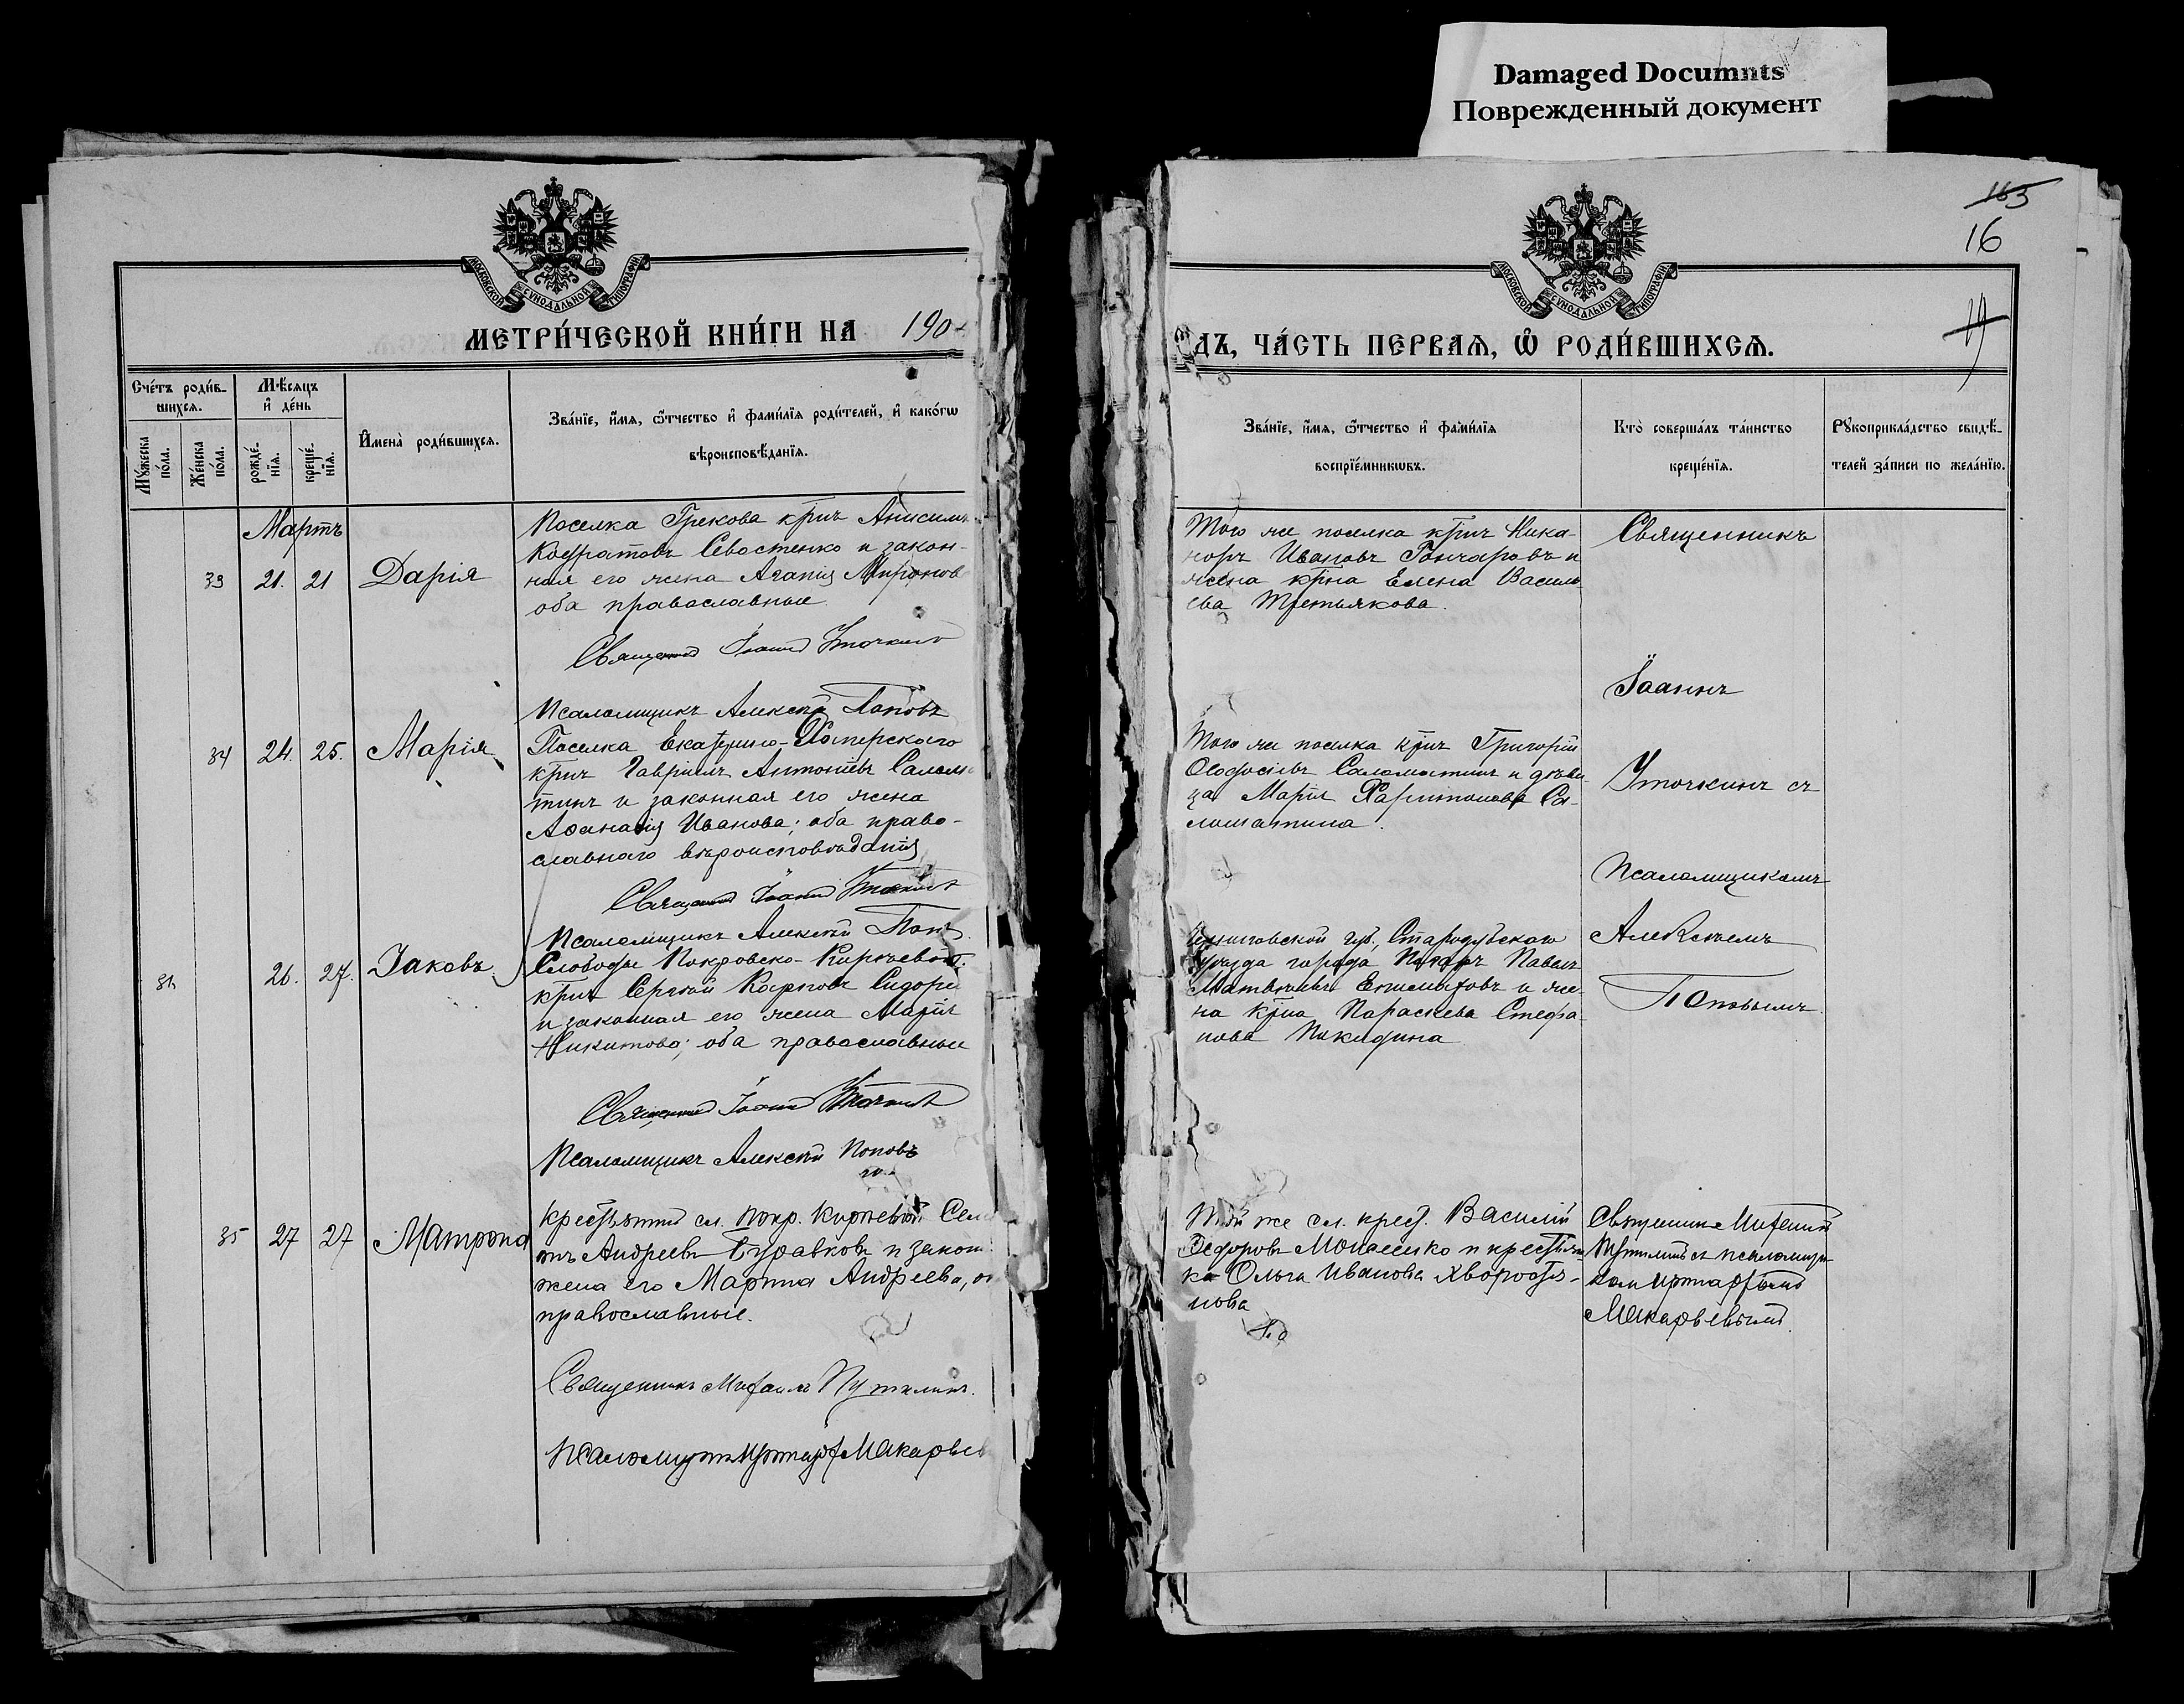 Damaged Documnts
Поврежденный документ
МОСКОВСКОЙ СУНОДАЛЬНОЙ ТИПОГРАФІИ
МЕТРИ́ЧЕСКОЙ КНИ́ГИ НА 190
Сче́тъ роди́в-
шихся.
Мѣсяцъ
и҆ де́нь
Му́жеска
по́ла.
Же́нска
по́ла.
рожде́-
нїя.
креще́-
нїя.
И҆мена̀ роди́вшихся.
Зва́нїе, и҆́мя, ѻ҆́тчество и҆ фами́лїя роди́телей, и҆ како́гѡ
вѣроисповѣ́данїя.
Мартъ
33 21. 21 Дарія
Поселка Грекова кр–нъ Анисимъ
Кодратовъ Севостенко и закон-
ная его жена Агапія Миронов
оба православные
Священникъ Іоаннъ Уточкинъ
Псаломщикъ Алексѣй Поповъ
34 24. 25. Марія
Поселка Екатерино-Хоперскаго
кр–нъ Гавріилъ Антоніевъ Салом
тинъ и законная его жена
Аѳанасія Иванова; оба право-
славнаго вѣроисповѣданія
Священникъ Іоаннъ Уточкинъ
Псаломщикъ Алексѣй Попъ
26. 27. Іаковъ
Слободы Покровско-Кирѣевой
кр–нъ Сергѣй Карповъ Сидоре
и законная его жена Марія
Никитова; оба православные
Священникъ Іоаннъ Уточкинъ
Псаломщикъ Алексѣй Поповъ
35 27 27 Матрона
Крестьянинъ сл. Покр. Кирѣевой Сем
нъ Андреевъ Буравковъ и закон
жена его Марѳа Андреева, об
православные.
Священникъ Михаилъ Путилинъ.
Псаломщикъ Макарьев
163
16
19
МОСКОВСКОЙ СУНОДАЛЬНОЙ ТИПОГРАФІИ
ДЪ, ЧА́СТЬ ПЕ́РВАЯ, Ѽ РОДИ́ВШИХСЯ.
Зва́нїе, и҆́мя, ѻ҆́тчество и҆ фами́лїя
воспрїе́мникѡвъ.
Кто̀ соверша́лъ та́инство
креще́нїя.
Рꙋкоприкла́дство свидѣ́-
телей за́писи по жела́нїю.
Того же поселка кр–нъ Ника-
норъ Ивановъ Гончаровъ и
жена кр–на Елена Василь
ева Третьякова.
Священникъ
Іоаннъ
Того же поселка кр–нъ Григорій
Ѳеодосіевъ Саломатинъ и дѣви-
ца Марія Харитонова Са-
ломатина.
Уточкинъ съ
Псаломщикомъ
Черниговской губ., Стародубскаго
уѣзда города Погаръ Павелъ
Матвѣевъ и же-
на кр–на Параскева Стефа-
нова
Алексѣемъ
Поповымъ.
Той же сл. крест. Василій
Ѳедоровъ Монасенко и крестьян
ка Ольга Иванова Хворостя-
нова
Священникъ Михаилъ
Путилинъ съ псаломщи-
комъ
Макарьевымъ.